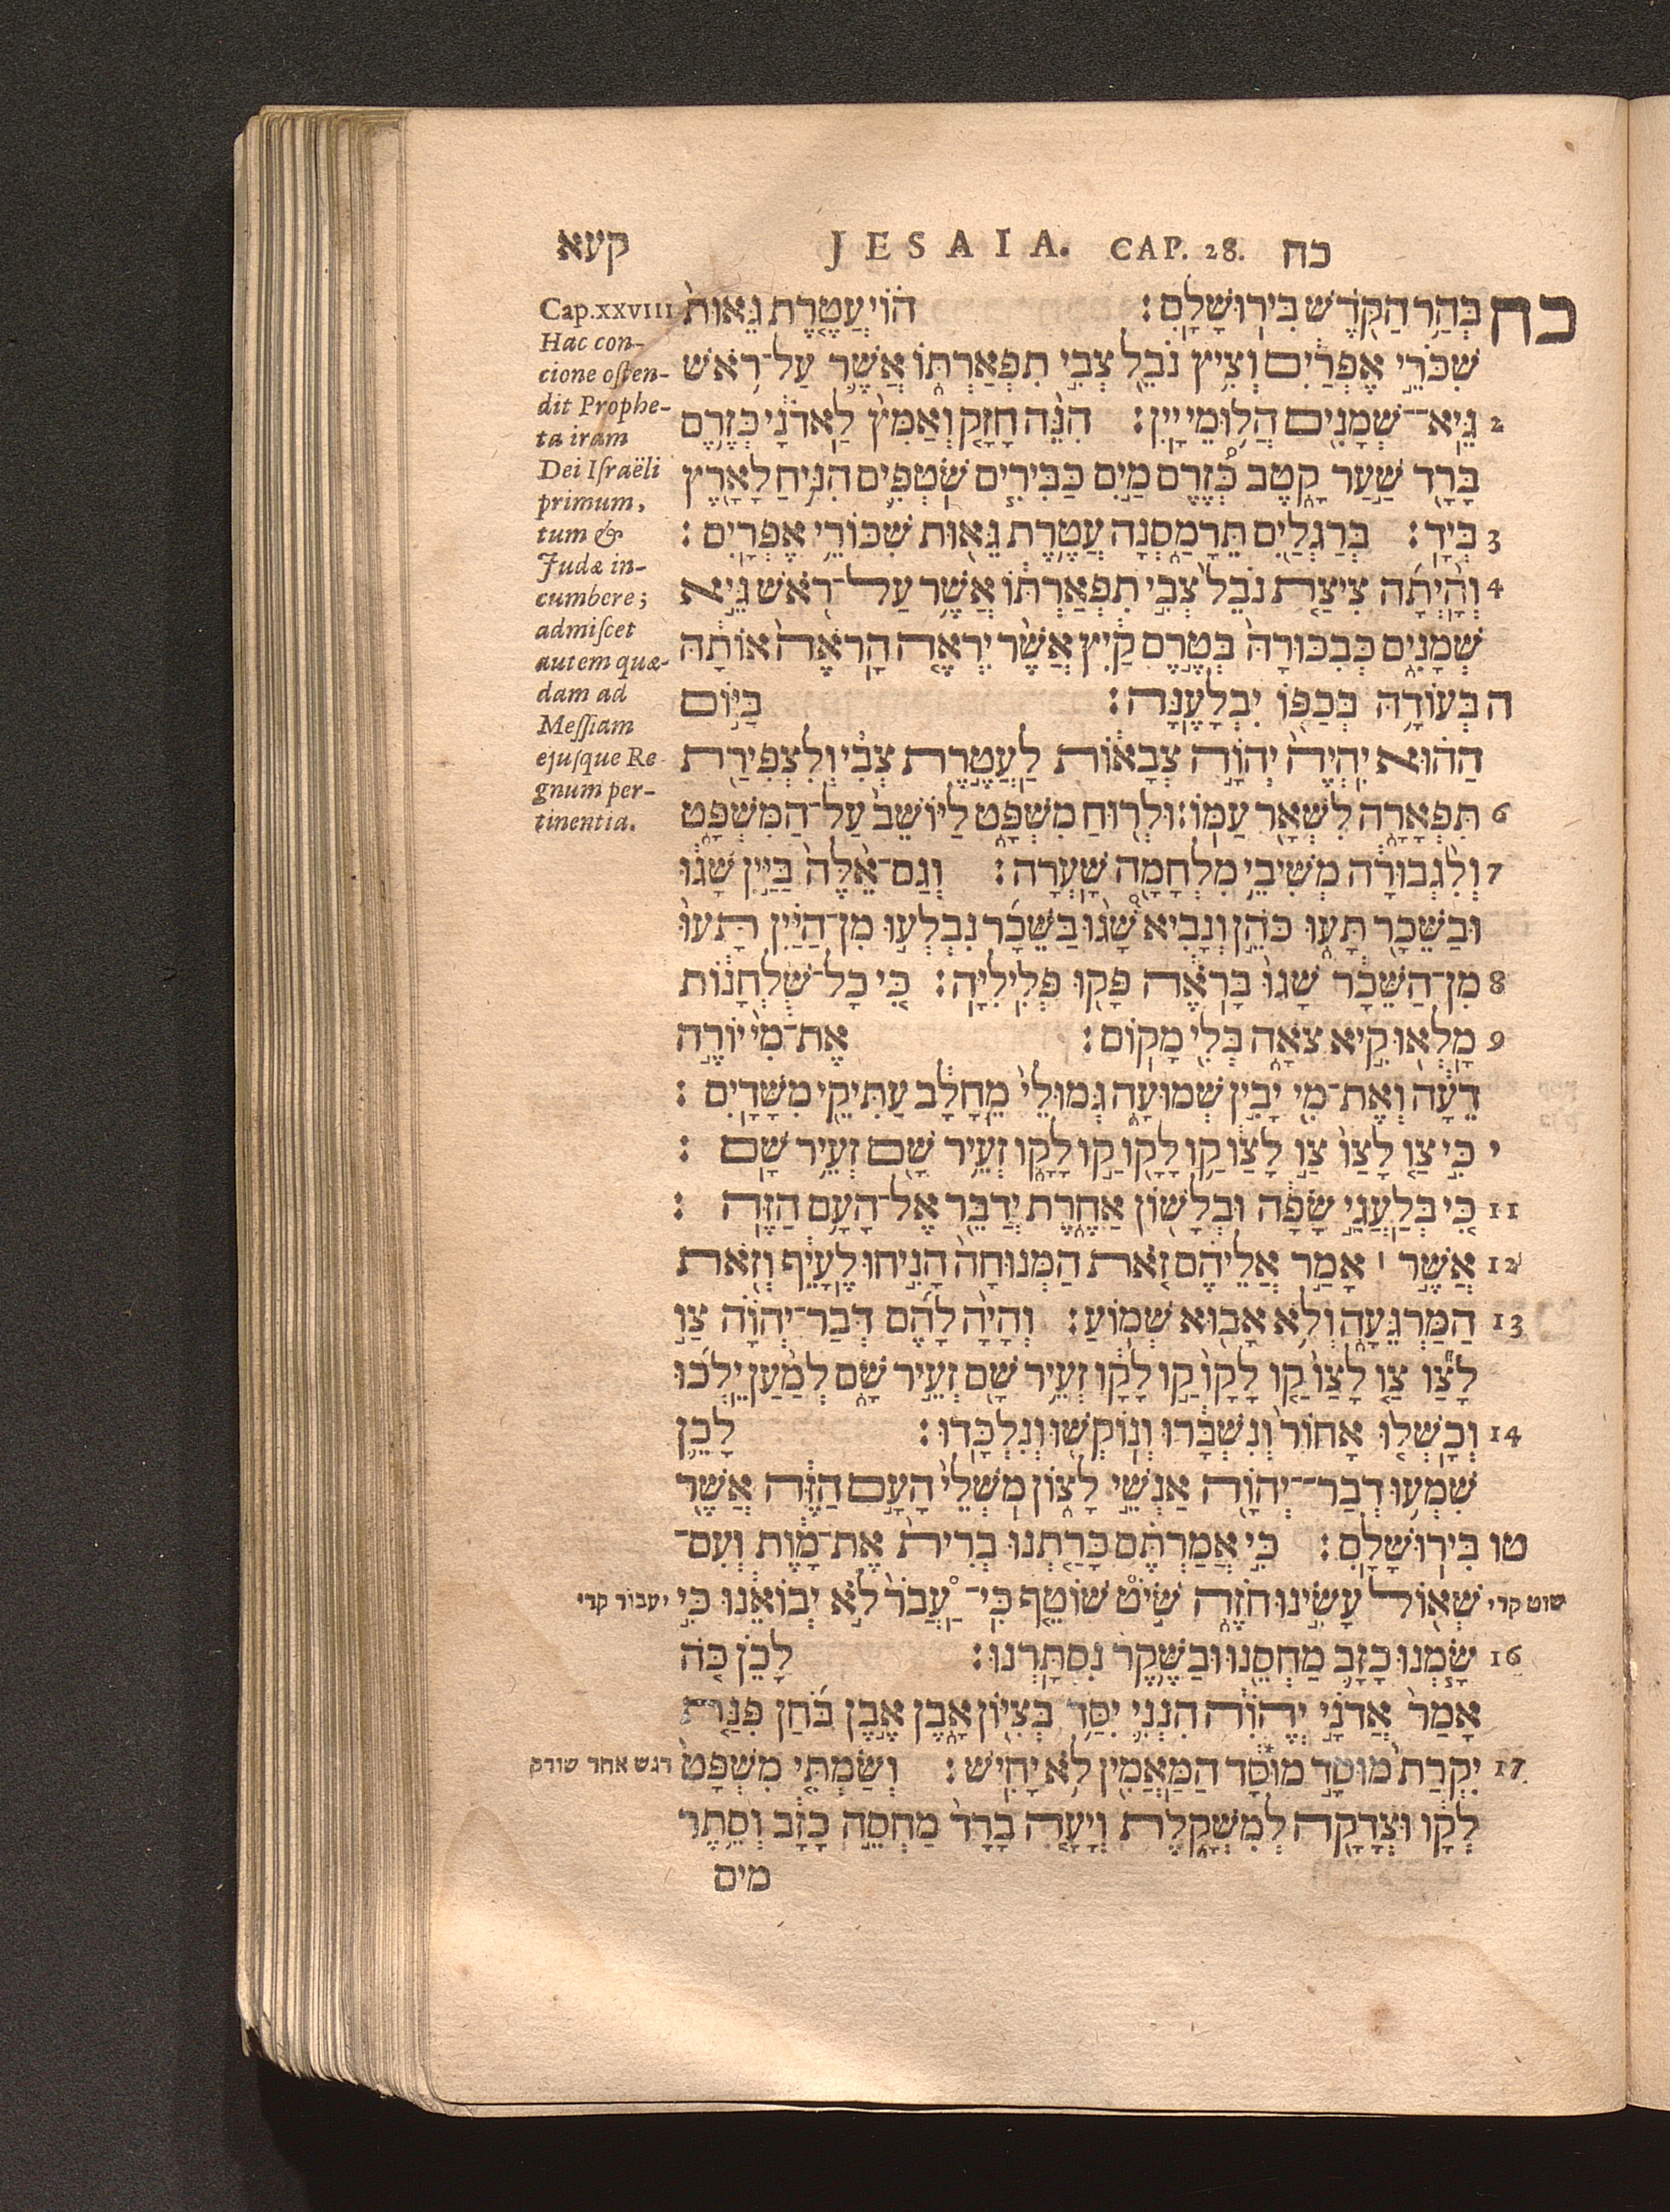 קעא JESAIA. CAP. 28. כח
כח בְּהַ֥ר הַקֹּ֖דֶשׁ בִּירֽוּשָׁלָֽ͏ִם׃ ה֗וֹי עֲטֶ֤רֶת גֵּאוּת֙
שִׁכֹּרֵ֣י אֶפְרַ֔יִם וְצִ֥יץ נֹבֵ֖ל צְבִ֣י תִפְאַרְתּ֑וֹ אֲשֶׁ֛ר עַל־רֹ֥אשׁ
2 גֵּֽיא־שְׁמָנִ֖ים הֲל֥וּמֵי יָֽיִן׃ הִנֵּ֨ה חָזָ֤ק וְאַמִּץ֙ לַֽאדֹנָ֔י כְּזֶ֥רֶם
בָּרָ֖ד שַׂ֣עַר קָ֑טֶב כְּ֠זֶרֶם מַ֣יִם כַּבִּירִ֥ים שֹׁטְפִ֛ים הִנִּ֥יחַ לָאָ֖רֶץ
3 בְּיָֽד׃ בְּרַגְלַ֖יִם תֵּֽרָמַ֑סְנָה עֲטֶ֥רֶת גֵּא֖וּת שִׁכּוֹרֵ֥י אֶפְרָֽיִם׃
4 וְֽהָ֨יְתָ֜ה צִיצַ֤ת נֹבֵל֙ צְבִ֣י תִפְאַרְתּ֔וֹ אֲשֶׁ֥ר עַל־רֹ֖אשׁ גֵּ֣יא
שְׁמָנִ֑ים כְּבִכּוּרָהּ֙ בְּטֶ֣רֶם קַ֔יִץ אֲשֶׁ֨ר יִרְאֶ֤ה הָֽרֹאֶה֙ אוֹתָ֔הּ
ה בְּעוֹדָ֥הּ בְּכַפּ֖וֹ יִבְלָעֶֽנָּה׃ בַּיּ֣וֹם
הַה֗וּא יִֽהְיֶה֙ יְהוָ֣ה צְבָא֔וֹת לַעֲטֶ֣רֶת צְבִ֔י וְלִצְפִירַ֖ת
6 תִּפְאָרָ֑ה לִשְׁאָ֖ר עַמּֽוֹ׃ וּלְר֖וּחַ מִשְׁפָּ֑ט לַיּוֹשֵׁב֙ עַל־הַמִּשְׁפָּ֔ט
7 וְלִ֨גְבוּרָ֔ה מְשִׁיבֵ֥י מִלְחָמָ֖ה שָֽׁעְרָה׃ וְגַם־אֵ֙לֶּה֙ בַּיַּ֣יִן שָׁג֔וּ
וּבַשֵּׁכָ֖ר תָּע֑וּ כֹּהֵ֣ן וְנָבִיא֩ שָׁג֨וּ בַשֵּׁכָ֜ר נִבְלְע֣וּ מִן־הַיַּ֗יִן תָּעוּ֙
8 מִן־הַשֵּׁכָ֔ר שָׁגוּ֙ בָּֽרֹאֶ֔ה פָּק֖וּ פְּלִֽילִיָּֽה׃ כִּ֚י כָּל־שֻׁלְחָנ֔וֹת
9 מָלְא֖וּ קִ֣יא צֹאָ֑ה בְּלִ֖י מָקֽוֹם׃ אֶת־מִי֙ יוֹרֶ֣ה
דֵעָ֔ה וְאֶת־מִ֖י יָבִ֣ין שְׁמוּעָ֑ה גְּמוּלֵי֙ מֵֽחָלָ֔ב עַתִּיקֵ֖י מִשָּׁדָֽיִם׃
י כִּ֣י צַ֤ו לָצָו֙ צַ֣ו לָצָ֔ו קַ֥ו לָקָ֖ו קַ֣ו לָקָ֑ו זְעֵ֥יר שָׁ֖ם זְעֵ֥יר שָֽׁם׃
11 כִּ֚י בְּלַעֲגֵ֣י שָׂפָ֔ה וּבְלָשׁ֖וֹן אַחֶ֑רֶת יְדַבֵּ֖ר אֶל־הָעָ֥ם הַזֶּֽה׃
12 אֲשֶׁ֣ר ׀ אָמַ֣ר אֲלֵיהֶ֗ם זֹ֤את הַמְּנוּחָה֙ הָנִ֣יחוּ לֶֽעָיֵ֔ף וְזֹ֖את
13 הַמַּרְגֵּעָ֑ה וְלֹ֥א אָב֖וּא שְׁמֽוֹעַ׃ וְהָיָ֨ה לָהֶ֜ם דְּבַר־יְהוָ֗ה צַ֣ו
לָצָ֞ו צַ֤ו לָצָו֙ קַ֤ו לָקָו֙ קַ֣ו לָקָ֔ו זְעֵ֥יר שָׁ֖ם זְעֵ֣יר שָׁ֑ם לְמַ֨עַן יֵלְכ֜וּ
14 וְכָשְׁל֤וּ אָחוֹר֙ וְנִשְׁבָּ֔רוּ וְנוֹקְשׁ֖וּ וְנִלְכָּֽדוּ׃ לָכֵ֛ן
שִׁמְע֥וּ דְבַר־יְהוָ֖ה אַנְשֵׁ֣י לָצ֑וֹן מֹֽשְׁלֵי֙ הָעָ֣ם הַזֶּ֔ה אֲשֶׁ֖ר
טו בִּירֽוּשָׁלָֽ͏ִם׃ כִּ֣י אֲמַרְתֶּ֗ם כָּרַ֤תְנוּ בְרִית֙ אֶת־מָ֔וֶת וְעִם־
שוט קרי שְׁא֖וֹל עָשִׂ֣ינוּ חֹזֶ֑ה שִׁ֣יט שׁוֹטֵ֤ף כִּֽי־עֲבַר֙ לֹ֣א יְבוֹאֵ֔נוּ כִּ֣י יעבור קרי
16 שַׂ֧מְנוּ כָזָ֛ב מַחְסֵ֖נוּ וּבַשֶּׁ֥קֶר נִסְתָּֽרְנוּ׃ לָכֵ֗ן כֹּ֤ה
אָמַר֙ אֲדֹנָ֣י יְהוִ֔ה הִנְנִ֛י יִסַּ֥ד בְּצִיּ֖וֹן אָ֑בֶן אֶ֣בֶן בֹּ֜חַן פִּנַּ֤ת
17 יִקְרַת֙ מוּסָ֣ד מוּסָּ֔ד הַֽמַּאֲמִ֖ין לֹ֥א יָחִֽישׁ׃ וְשַׂמְתִּ֤י מִשְׁפָּט֙ דגש אחר שורק
לְקָ֔ו וּצְדָקָ֖ה לְמִשְׁקָ֑לֶת וְיָעָ֤ה בָרָד֙ מַחְסֵ֣ה כָזָ֔ב וְסֵ֥תֶר
מים
Cap.XXVIII
Hac con-
cione osten-
dit Prophe-
ta iram
Dei Israëli
primum,
tum &
Judæ in-
cumbere;
admiscet
autem quæ-
dam ad
Messiam
ejusque Re-
gnum per-
tinentia.